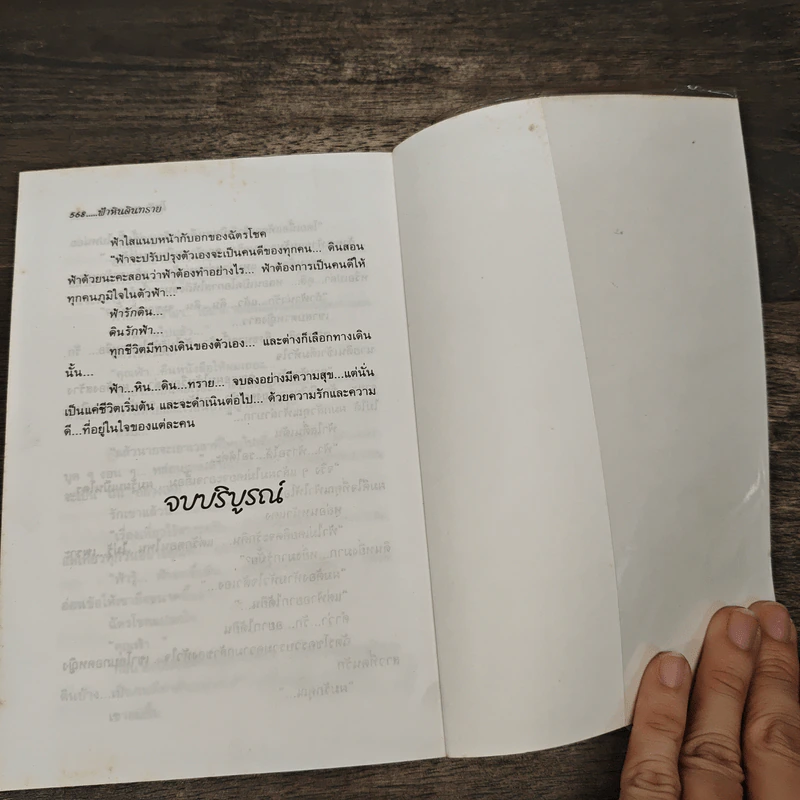 568.....ฟ้าหินดินทราย
ฟ้าใสแนบหน้ากับอกของฉัตรโชค
"ฟ้าจะปรับปรุงตัวเองจะเป็นคนดีของทุกคน... ดินสอน
ฟ้าด้วยนะคะสอนว่าฟ้าต้องทำอย่างไร... ฟ้าต้องการเป็นคนดีให้
ทุกคนภูมิใจในตัวฟ้า..."
ฟ้ารักดิน...
ดินรักฟ้า...
ทุกชีวิตมีทางเดินของตัวเอง... และต่างก็เลือกทางเดิน
นั้น...
ฟ้า...หิน...ดิน...ทราย... จบลงอย่างมีความสุข...แต่นั่น
เป็นแค่ชีวิตเริ่มต้น และจะดำเนินต่อไป... ด้วยความรักและความ
ดี...ที่อยู่ในใจของแต่ละคน
จบบริบูรณ์